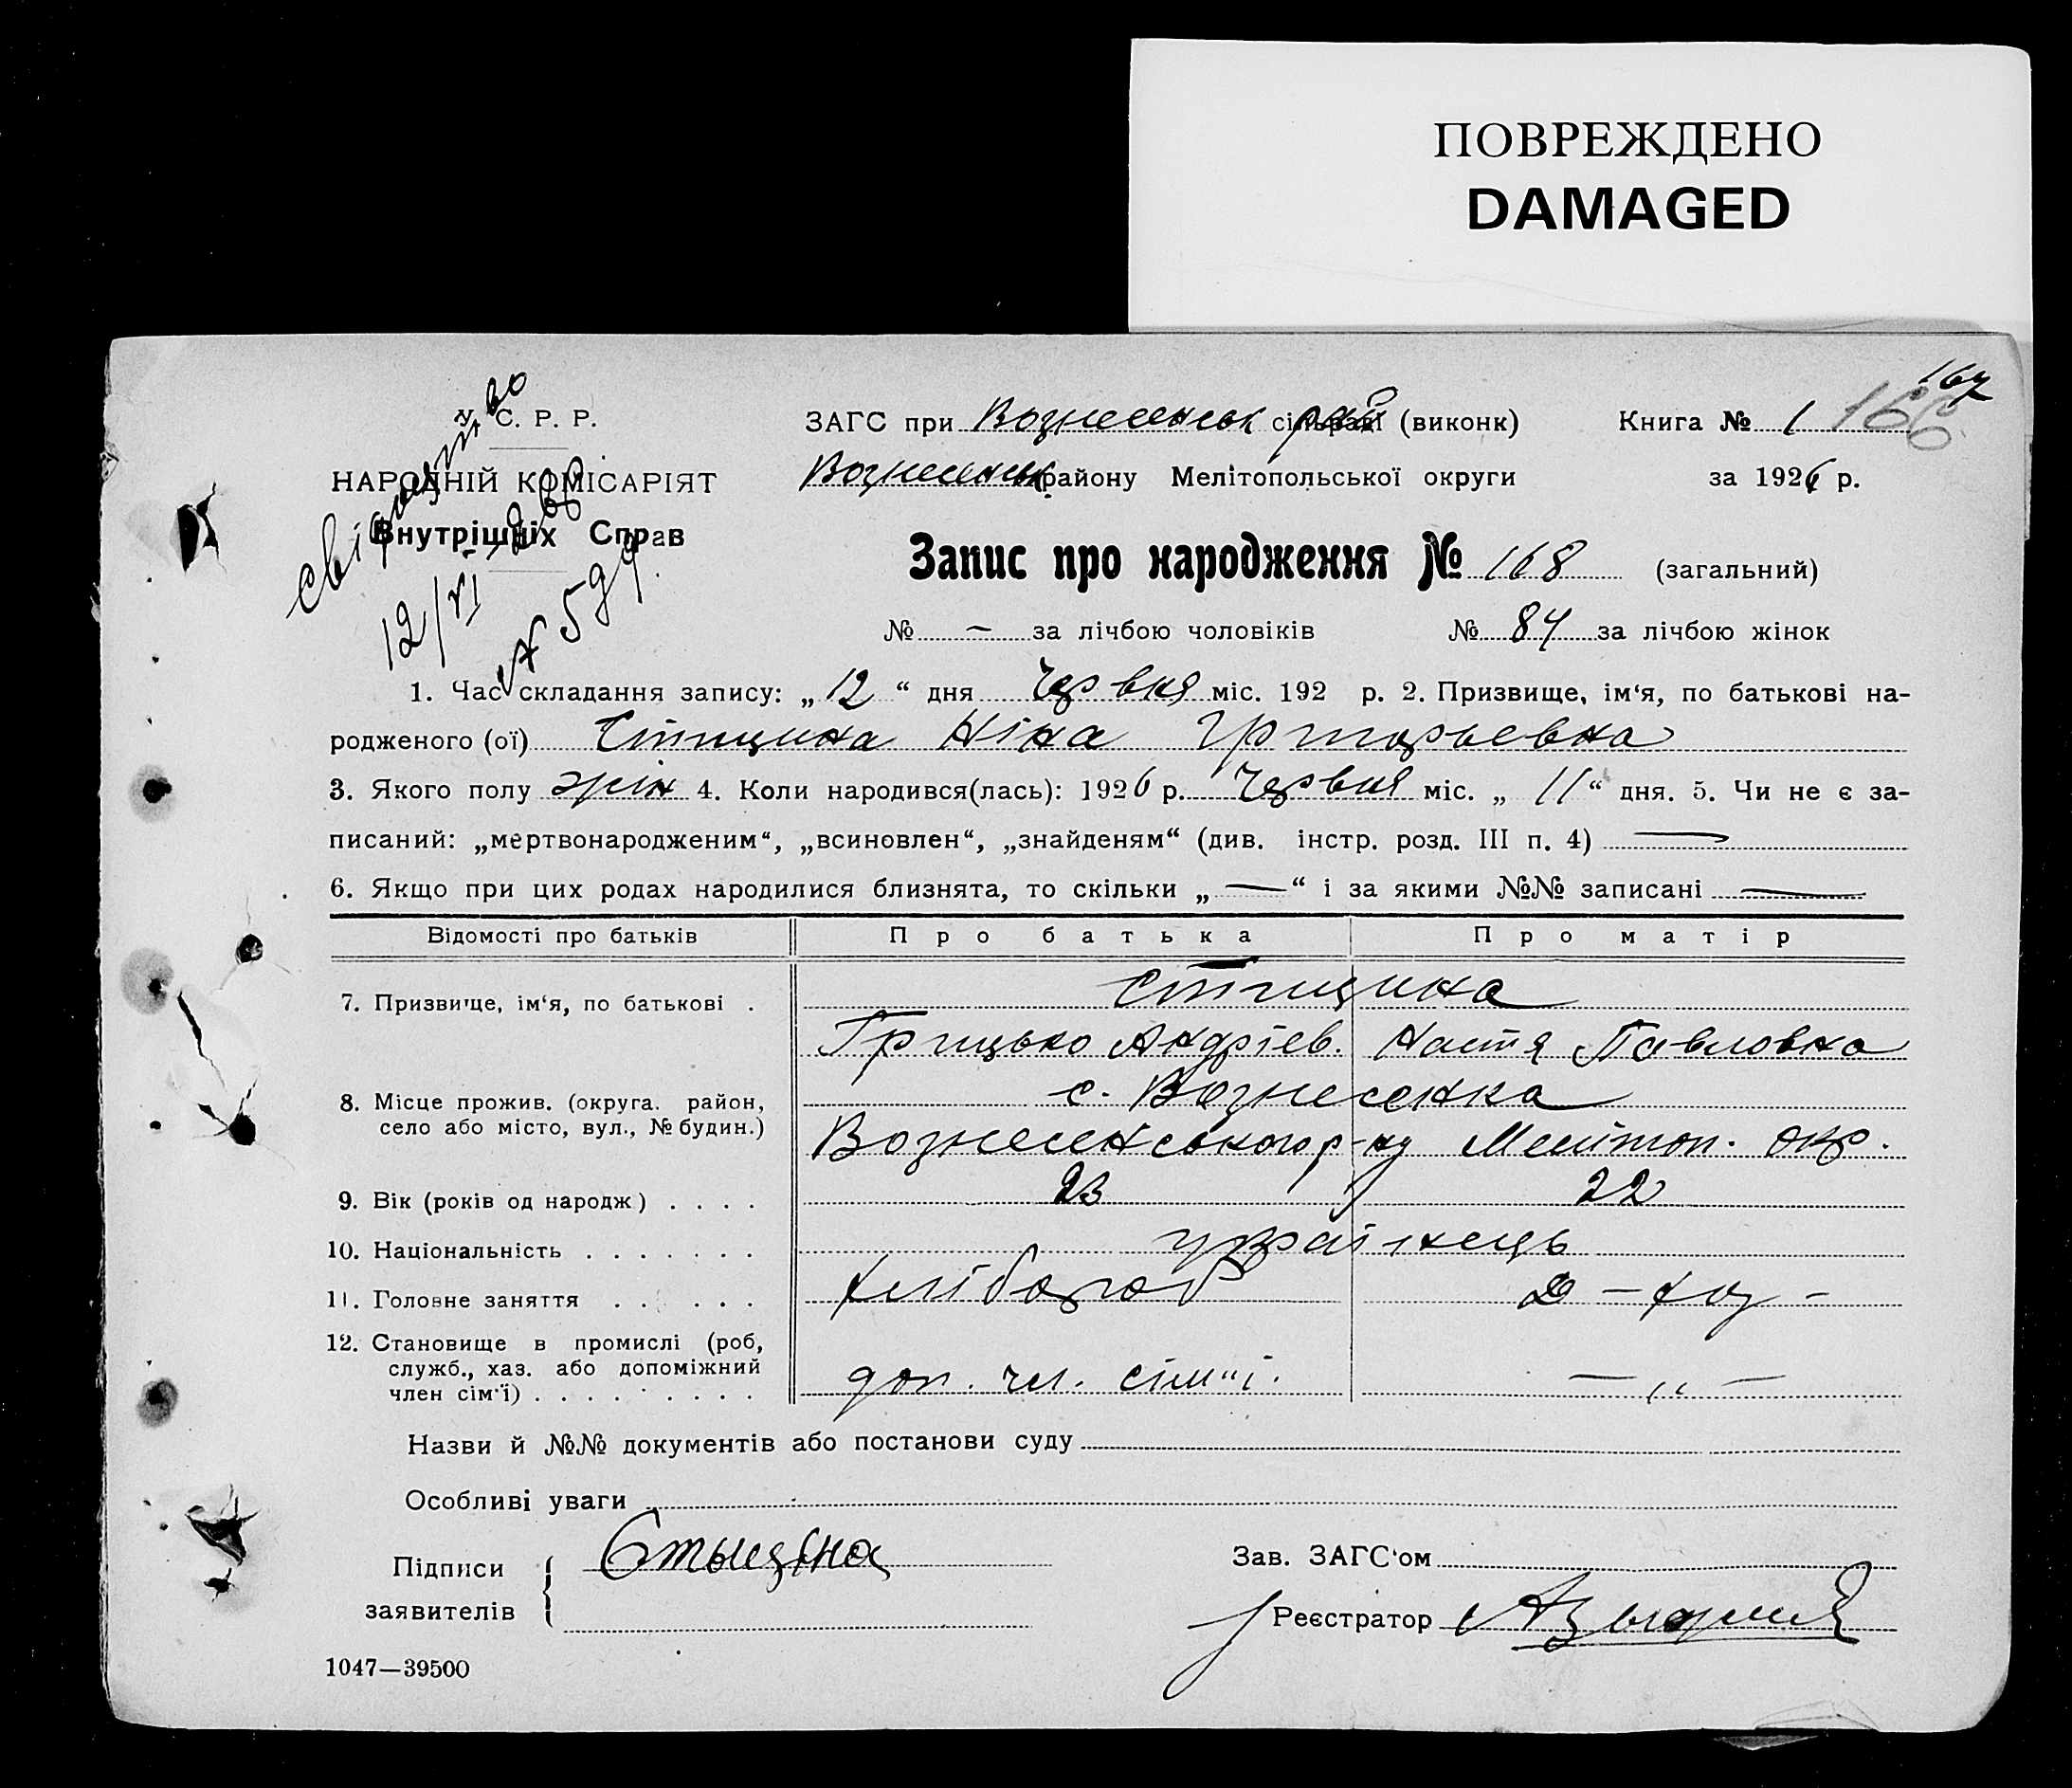 ПОВРЕЖДЕНО
DAMAGED
167
166
У. С. Р. Р.
НАРОДНІЙ КОМІСАРІЯТ
Внутрішніх Справ
свідоцтво
12/VI
№ 599
ЗАГС при Вознесенськ сільраді (виконк) Книга № 1
Вознесенськ району Мелітопольської округи за 1926 р.
Запис про народження № 168 (загальний)
№ — за лічбою чоловіків № 84 за лічбою жінок
1. Час складання запису: „ 12 “ дня Червня міс. 192 р. 2. Призвище, ім‘я, по батькові на-
родженого (ої) Стицина Ніна Григорьевна
3. Якого полу жін 4. Коли народився(лась): 1926 р. Червня міс. „ 11 “ дня. 5. Чи не є за-
писаний: „мертвонародженим“, „всиновлен“, „знайденям“ (див. інстр. розд. III п. 4) —
6. Якщо при цих родах народилися близнята, то скільки „ — “ і за якими №№ записані —
Відомості про батьків Про батька Про матір
7. Призвище, ім‘я, по батькові . Стицина
Грицько Андріев. Настя Павловна
8. Місце прожив. (округа. район, с. Вознесенка
село або місто, вул., № будин.) Вознесенського р-ну Меліт​оп. окр.
9. Вік (років од народж) . . . . 23 22
10. Національність . . . . . . . українець
11. Головне заняття . . . . . . хлібороб Д — хоз —
12. Становище в промислі (роб,
служб., хаз. або допоміжний
член сім‘ї) . . . . . . . . . доп. чл. сім"ї. — „ —
Назви й №№ документів або постанови суду
Особливі уваги
Підписи Стыцына Зав. ЗАГС‘ом
заявителів Реєстратор
1047—39500